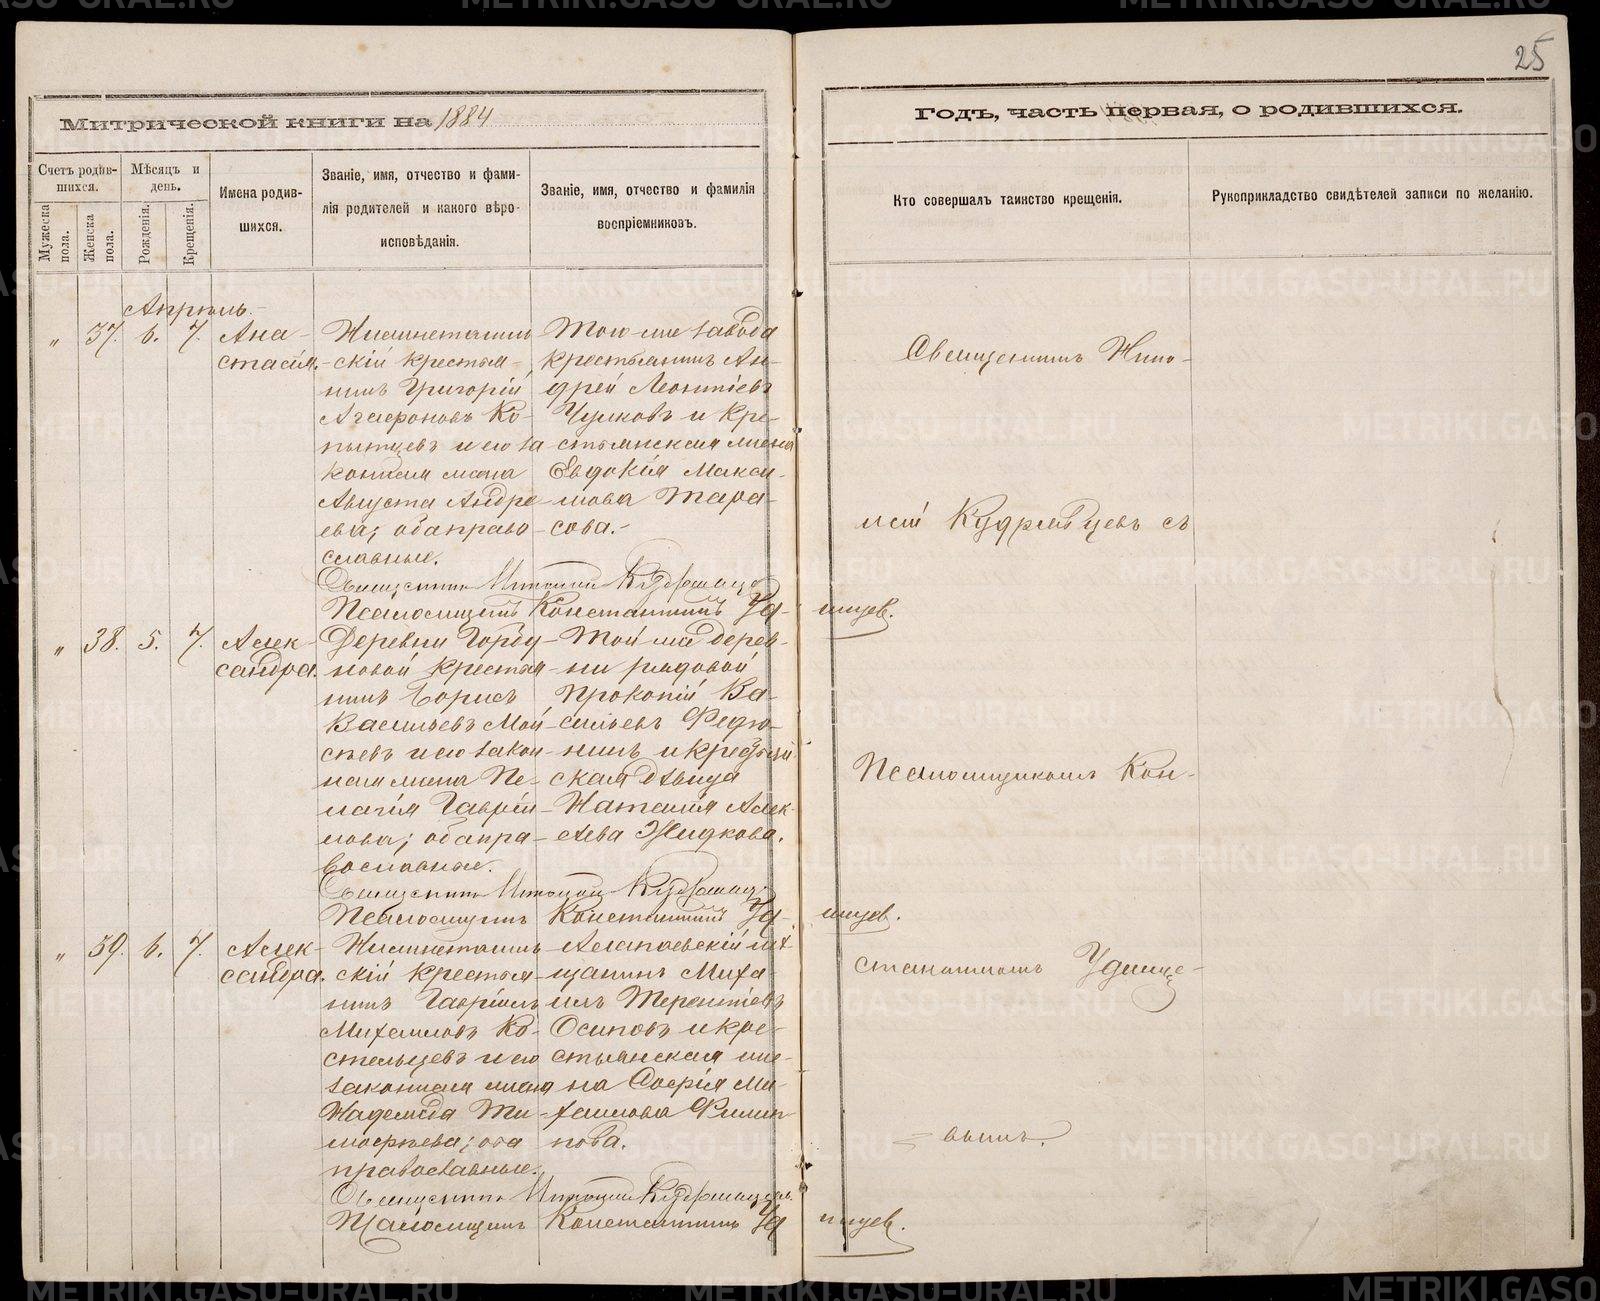 25
Митрической книги на 1884
Годъ, часть первая, о родившихся.
Счетъ родив-
шихся.
Мужеска пола.
Женска пола.
Мѣсяцъ и
день.
Рожденія.
Крещенія.
Имена родив-
шихся.
Званіе, имя, отчество и фами-
лія родителей и какого вѣро-
исповѣданія.
Званіе, имя, отчество и фамилія
воспріемниковъ.
Кто совершалъ таинство крещенія.
Рукоприкладство свидѣтелей записи по желанію.
Апрѣль.
" 37. 6. 7.
Ана-
стасія.
скій крестья-
нинъ Григорій
Агафоновъ Ко-
пытцевъ и его за
конная жена
Августа Андре
ева; оба право-
славные.
Того же завода
крестьянинъ Ан-
дрей Леонтіевъ
Чулковъ и кре-
стьянская жена
Евдокія Макси-
мова Тара-
сова.
Псаломщикъ Константинъ Уд-
инцев.
" 38. 5. 7.
Алек-
сандра.
Деревни
новой крестья
нинъ Борисъ
Васильевъ Мои
сѣевъ и его закон
ная жена Пе-
лагія Гаврии-
лова; оба пра-
вославные.
Той же дерев-
ни рядовой
Прокопій Ва-
сильевъ
и крестьян
ская дѣвица
Наталія Алек
сѣева Жидкова.
Псаломщикъ Константинъ Уд-
инцев.
" 39. 6. 7.
Алек-
сандра.
скій крестья-
нинъ Гавріилъ
Михаиловъ Ко-
стельцевъ и его
законная жена
Надежда Ти-
мофѣева; оба
православные.
Алапаевскій мѣ
щанинъ Миха-
илъ Терентіевъ
Осиповъ и кре-
стьянская же-
на Софія Ми-
хаилова Филип
пова.
Псаломщикъ Константинъ Уд
инцев.
Священникъ Иппо-
литъ Кудрявцевъ съ
Псаломщикомъ Кон-
стантиномъ Удинце-
вымъ.
METRIKI.GASO-URAL.RU